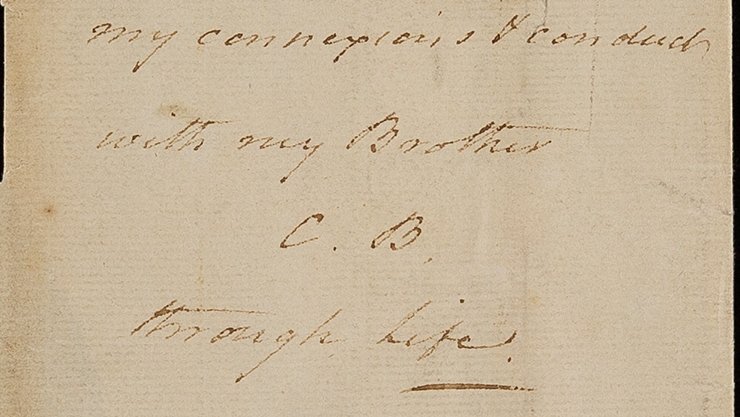 my connexions & conduct
with my Brother
C. B.
through Life.